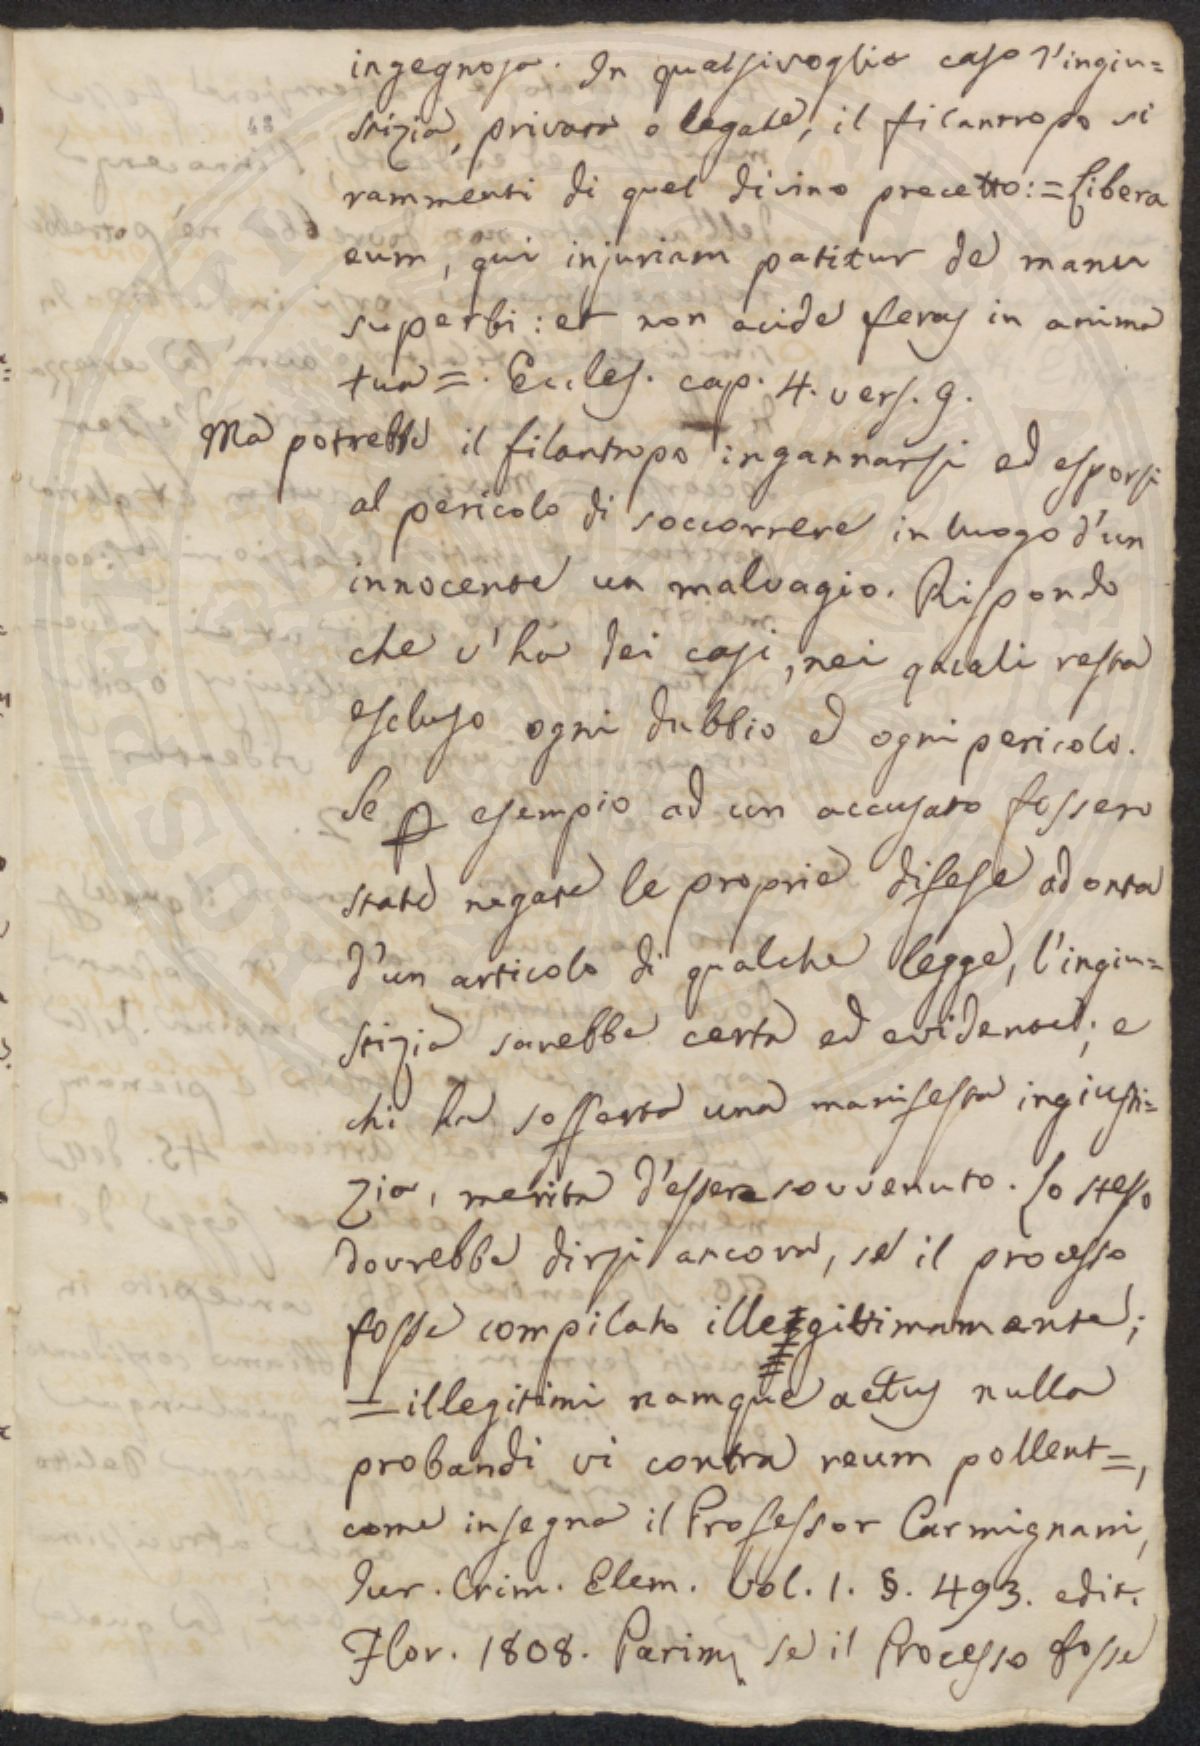 ingegnosa. In qualsivoglia caso l'ingiu=
stizia, privata o legale, il filantropo si
rammenti di quel divino precetto: = Libera
eum, qui injuriam patitur de manu
superbi: et non acide feras in anima
tua =. Eccles. cap. 4. vers. 9.
Ma potrebbe il filantropo ingannarsi ed esporsi
al pericolo di soccorrere in luogo d'un
innocente un malvagio. Rispondo
che v'ha dei casi, nei quali resta
escluso ogni dubbio ed ogni pericolo.
Se p esempio ad un accusato fossero
state negate le proprie difese ad onta
d'un articolo di qualche legge, l'ingiu=
stizia sarebbe certa ed evidente; e
chi ha sofferta una manifesta ingiusti=
zia, merita d'essere sovvenuto. Lo stesso
dovrebbe dirsi ancora, se il processo
fosse compilato illegittimamente;
= illegitimi namque actus nulla
probandi vi contra reum pollent =,
come insegna il Professor Carmignani,
Iur. Crim. Elem. Vol. 1. §. 493. edit.
Flor. 1808. Parim se il Processo fosse